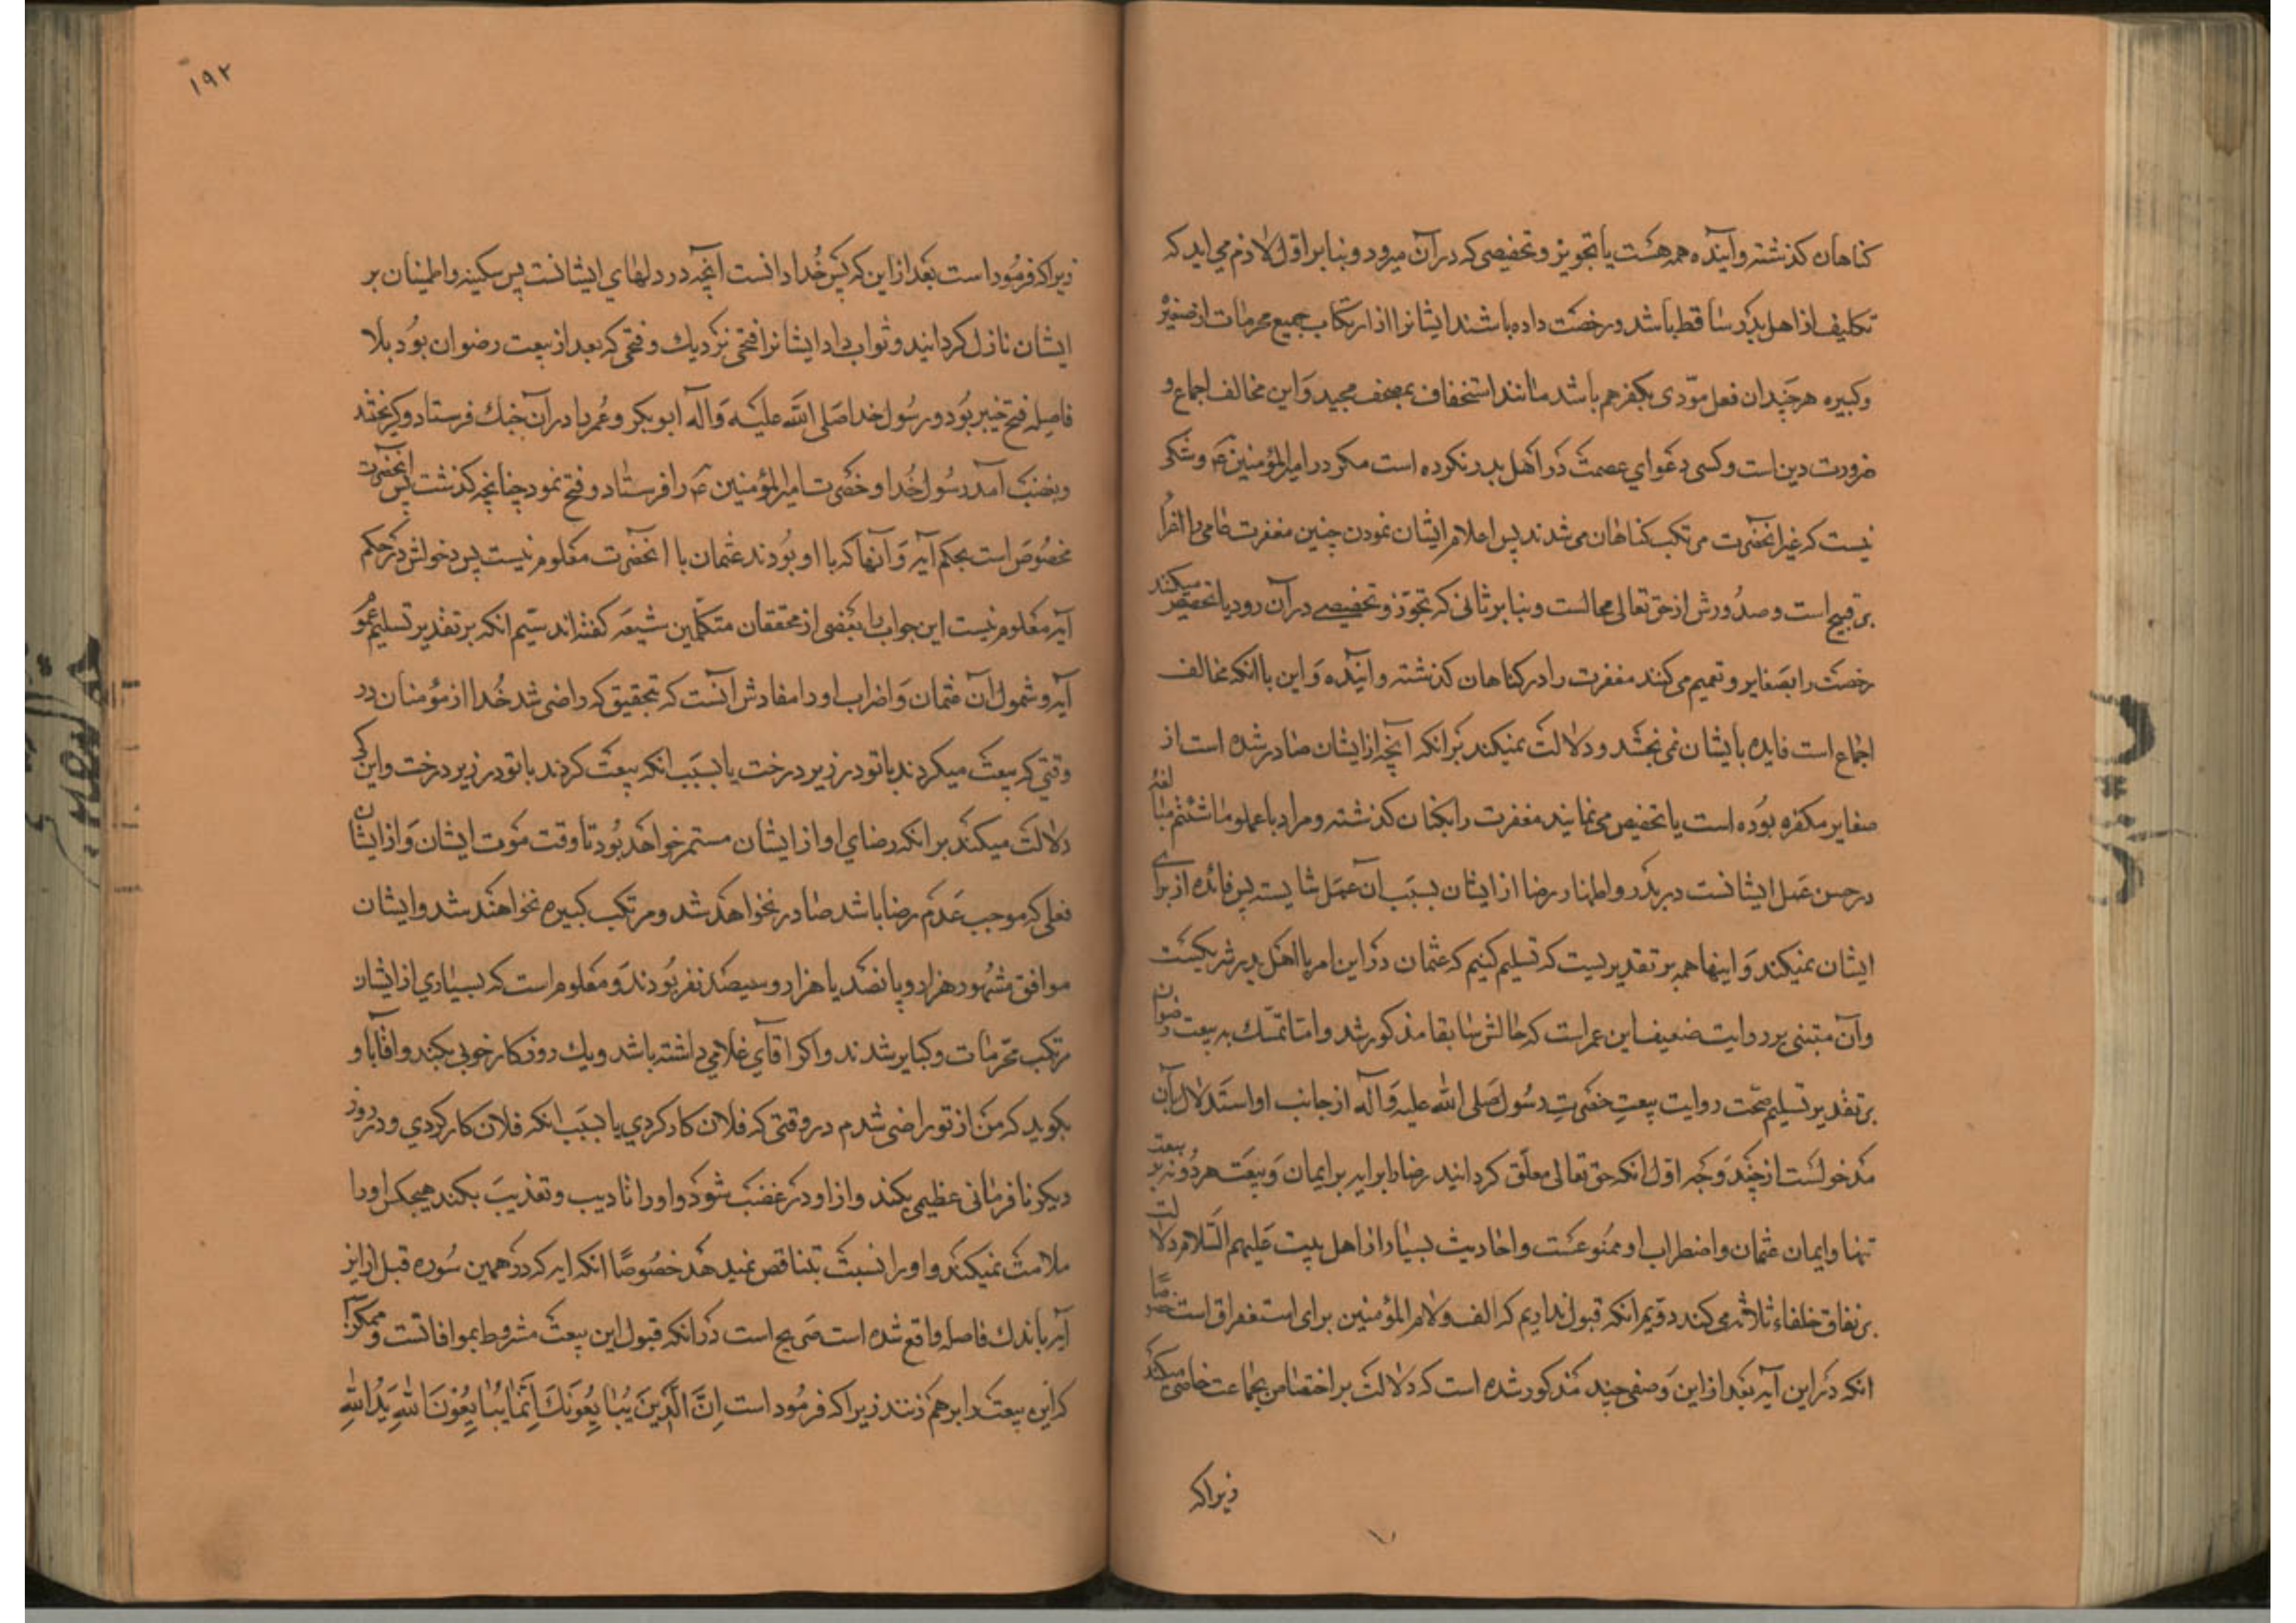 کناهان کذشته و آینده همه هست یا تجویز و تخصیصی که در آن میرود و بنا بر اول لازم می اید که
تکلیف از اهل بدر ساقط باشد و رخصت داده باشند ایشانرا از ارتکاب جمیع محرمات از صغیره
و کبیره هر چند ان فعل مؤدی بکفر هم باشد مانند استخفاف بمصحف مجید و این مخالف اجماع و
ضرورت دین است و کسی دعوای عصمت در اهل بدر نکرده است مکر در امیرالمؤمنین ع و شکی
نیست که غیر انحضرت مرتکب کناهان می شدند پس اعلام ایشان نمودن چنین مغفرت عامی را اغرا
بر قبیح است و صدورش از حق تعالی محالست و بنا بر ثانی که تجوّز و تخصیصی در آن رود یا تخصیص میکنند
رخصت را بصغایر و تعمیم می کنند مغفرت را در کناهان کذشته و آینده و این با انکه مخالف
اجماع است فایده بایشان نمی بخشد و دلالت نمیکند بر انکه آنچه از ایشان صادر شده است از
صغایر مکفره بوده است یا تخصیص می نمایند مغفرت را بکناهان کذشته و مراد باعملوا ما شئتم مبالغه
در حسن عمل ایشانست در بدر و اظهار رضا از ایشان بسبب ان عمل شایسته پس فائده از برای
ایشان نمیکند و اینها همه بر تقدیریست که تسلیم کنیم که عثمان در این امر با اهل بدر شریکست
و آن مبتنی بر روایت ضعیف ابن عمر است که حالش سابقا مذکور شد و اما تمسّک به بیعت رضوان
بر تقدیر تسلیم صحّت روایت بیعت حضرت رسول صلی الله علیه و آله از جانب او استدلال بآن
مدخولست از چند وجه اول انکه حق تعالی معلّق کردانید رضا را بر ایمان و بیعت هر دو نه بر بیعت
تنها و ایمان عثمان و اضراب او ممنوعست و احادیث بسیار از اهل بیت علیهم السّلام دلالت
بر نفاق خلفاء ثلاثه می کند دوّیم انکه قبول نداریم که الف و لام المؤمنین برای استغراق است خصوصًا
انکه در این آیه بعد از این وصفی چند مذکور شده است که دلالت بر اختصاص بجماعت خاصی میکند
زیرا که
۱۹۲
زیرا که فرموداست بعد از این که پس خُدا دانست آنچه در دلهای ایشانست پس سکینه و اطمینان بر
ایشان نازل کردانید و ثواب داد ایشانرا فتحی نزدیک و فتحی که بعد از بیعت رضوان بود بلا
فاصله فتح خیبر بود و رسول خدا صلی الله علیه و آله ابو بکر و عمر را در آن جنک فرستاد و کریختند
و بغضب آمد رسول خُدا و حضرت امیرالمؤمنین ع را فرستاد و فتح نمود چنانچه کذشت پس انحضرت
مخصوص است بحکم آیه و آنها که با او بودند عثمان با انحضرت معلوم نیست پس دخولش در حکم
آیه معلوم نیست این جواب را بعضی از محققان متکلّمین شیعه کفته اند سیّم انکه بر تقدیر تسلیم عموم
آیه و شمول آن عثمان و اضراب او را مفادش آنست که بتحقیق که راضی شد خُدا از مؤمنان در
وقتی که بیعت میکردند با تو در زیر درخت یا بسبب انکه بیعت کردند با تو در زیر درخت و این کی
دلالت میکند بر انکه رضای او از ایشان مستمر خواهد بود تا وقت موت ایشان و از ایشان
فعلی که موجب عدم رضا باشد صادر نخواهد شد و مرتکب کبیره نخواهند شد و ایشان
موافق مشهور هزار و پانصد یا هزار و سیصد نفر بودند و معلوم است که بسیاری از ایشان
مرتکب محرّمات و کبایر شدند و اکر اقای غلامی داشته باشد و یک روز کار خوبی بکند و اقا با و
بکوید که من از تو راضی شدم در وقتی که فلان کار کردی یا بسبب انکه فلان کار کردی و در روز
دیکر نافرمانی عظیمی بکند و از او در غضب شود و او را تادیب و تعذیب بکند هیچکس او را
ملامت نمیکند و او را نسبت بتناقض نمیدهد خصوصًا انکه ایه که در همین سوره قبل از این
آیه باندک فاصله واقع شده است صریح است در انکه قبول این بیعت مشروط بموافاتست و ممکن
که این بیعت را بر هم زنند زیرا که فرمود است اِنَّ الَّذینَ یُبٰایِعُونَکَ اِنَّمٰا یُبٰایِعُونَ اللهَ یَدُ اللهِ